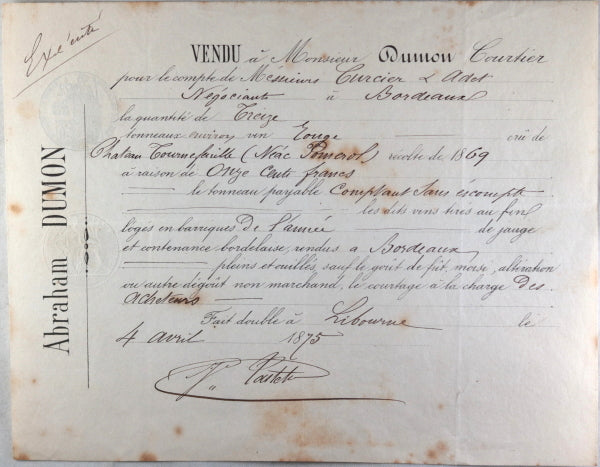 Exécuté
Abraham DUMON
VENDU à Monsieur Dumon Courtier
pour le compte de Messieurs Curcier & Adet
Négociants à Bordeaux
la quantité de Treize
tonneaux environ vin Rouge crû de
Chateau Tournefeuille (Néac Pomerol) récolte de 1869
à raison de Onze Cents francs
le tonneau payable Comptant Sans escompte
les dits vins tirés au fin
logés en barriques De l'année de jauge
et contenance bordelaise, rendus à Bordeaux
pleins et ouillés, sauf le goût de fût, moisi, altération
ou autre dégoût non marchand, le courtage à la charge Des
Acheteurs
Fait double à Libourne le
4 avril 1875